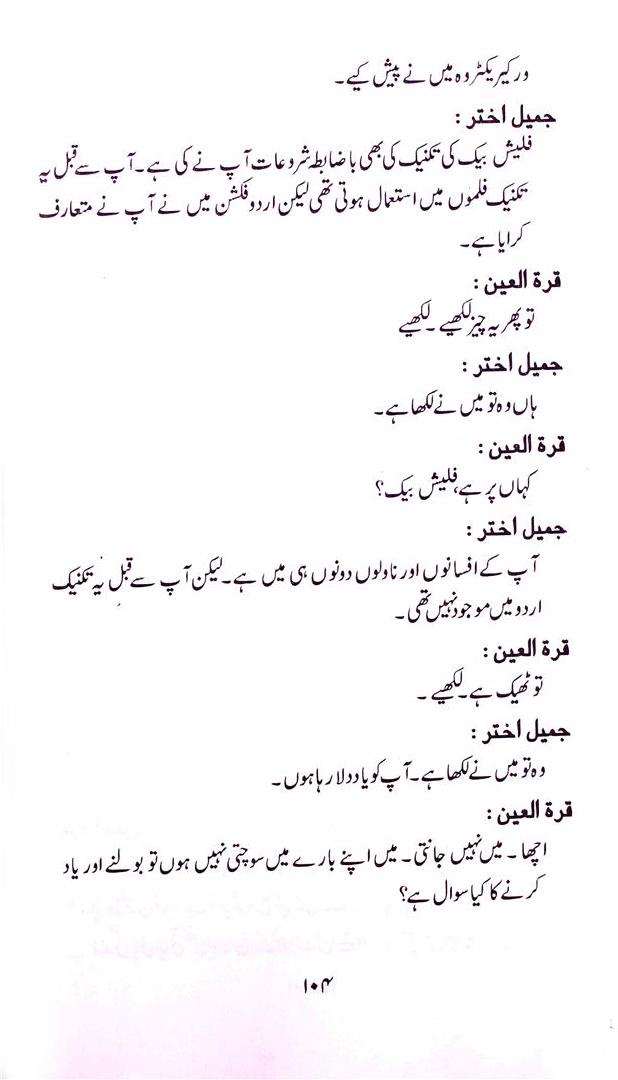 ور کیریکٹر وہ میں نے پیش کیے۔
جمیل اختر :
فلیش بیک کی تکنیک کی بھی باضابطہ شروعات آپ نے کی ہے۔ آپ سے قبل یہ
تکنیک فلموں میں استعمال ہوتی تھی لیکن اردو فکشن میں نے آپ نے متعارف
کرایا ہے۔
قرۃ العین :
تو پھر یہ چیز لکھیے ۔ لکھیے
جمیل اختر :
ہاں وہ تو میں نے لکھا ہے۔
قرۃ العین :
کہاں پر ہے، فلیش بیک؟
جمیل اختر :
آپ کے افسانوں اور ناولوں دونوں ہی میں ہے۔ لیکن آپ سے قبل یہ تکنیک
اردو میں موجود نہیں تھی۔
قرۃ العین :
تو ٹھیک ہے۔ لکھیے ۔
جمیل اختر :
وہ تو میں نے لکھا ہے۔ آپ کو یاد دلا رہا ہوں۔
قرۃ العین :
اچھا ۔ میں نہیں جانتی۔ میں اپنے بارے میں سوچتی نہیں ہوں تو بولنے اور یاد
کرنے کا کیا سوال ہے؟
۱۰۴